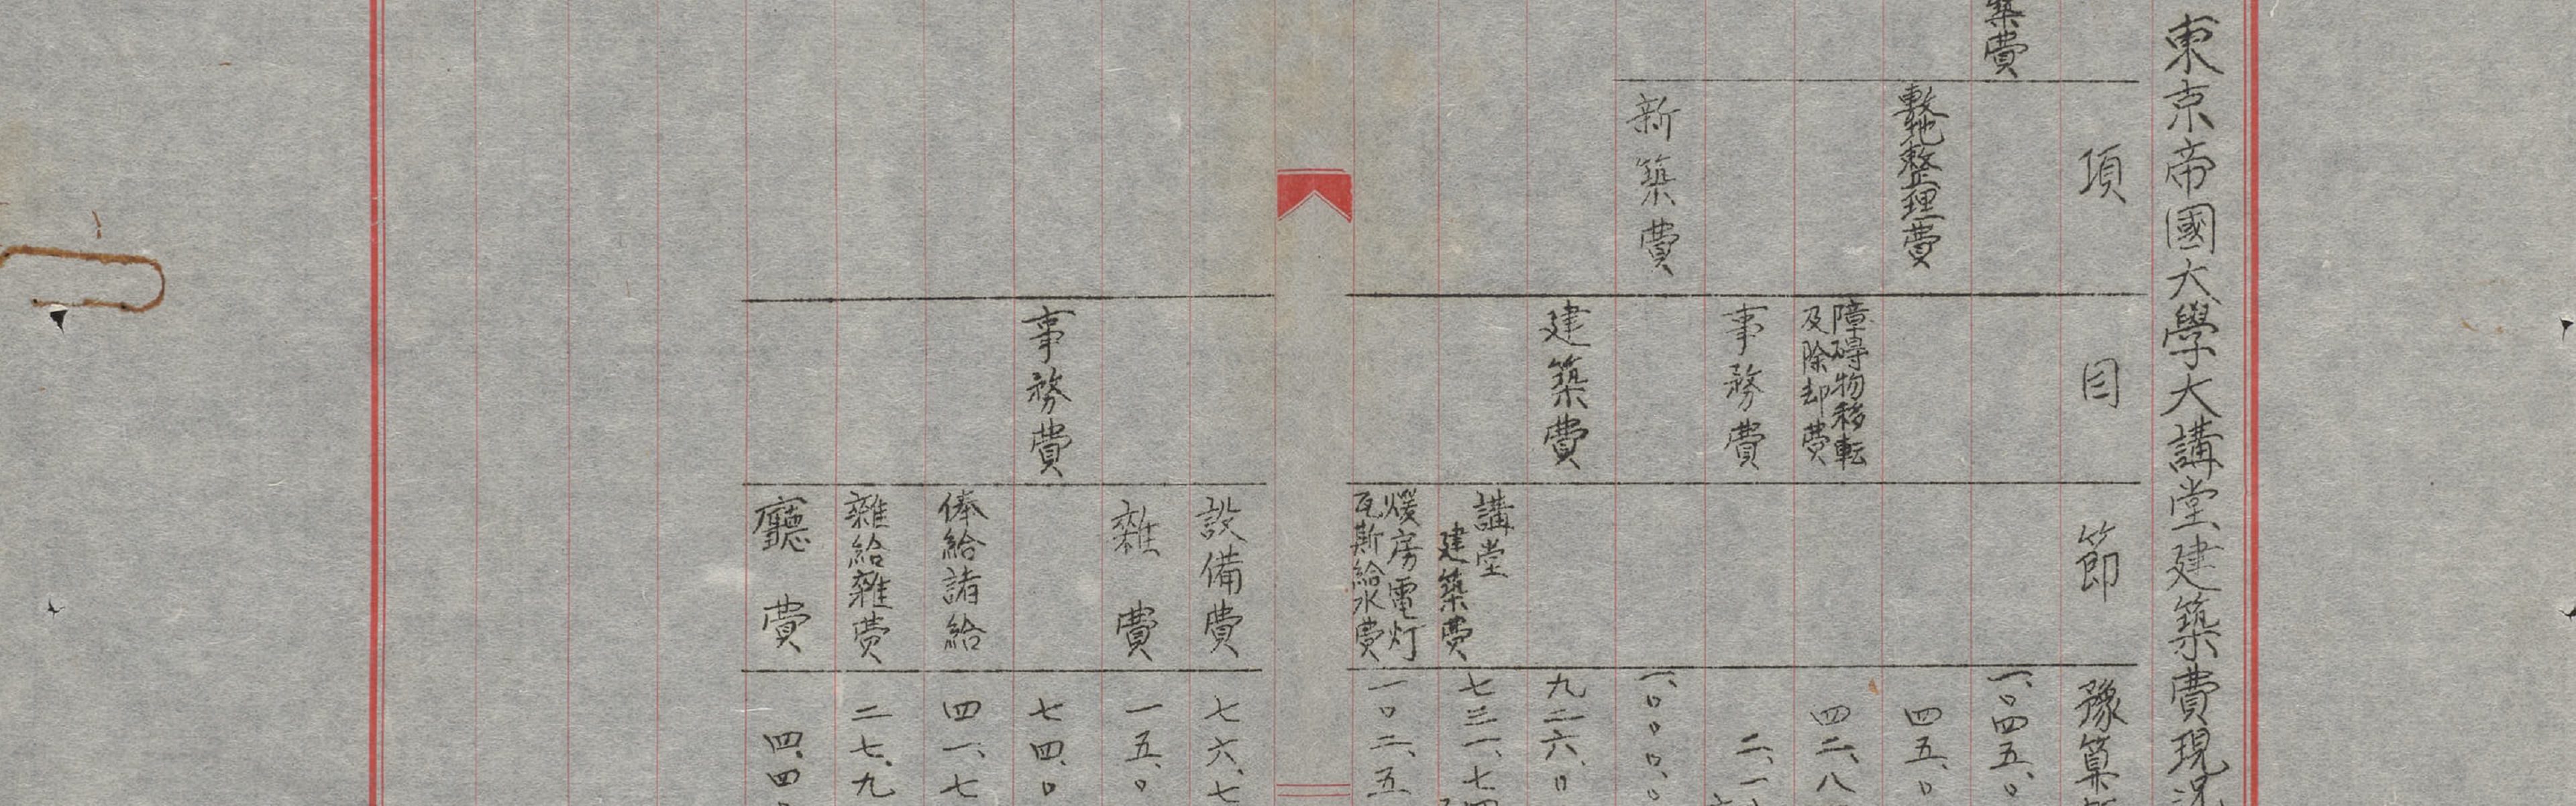 東京帝國大學大講堂建築費現況
項 目 節 豫算
築費 一、〇四五、〇
敷地整理費 四五、〇
障碍物移転及除却費 四二、八
事務費 二、一
新築費 一、〇〇〇、〇
建築費 九二六、〇
講堂建築費 七三一、七四
煖房電灯瓦斯給水費 一〇二、五
設備費 七六、七
雜費 一五、〇
事務費 七四、〇
俸給諸給 四一、七
雜給雜費 二七、九
廳費 四、四